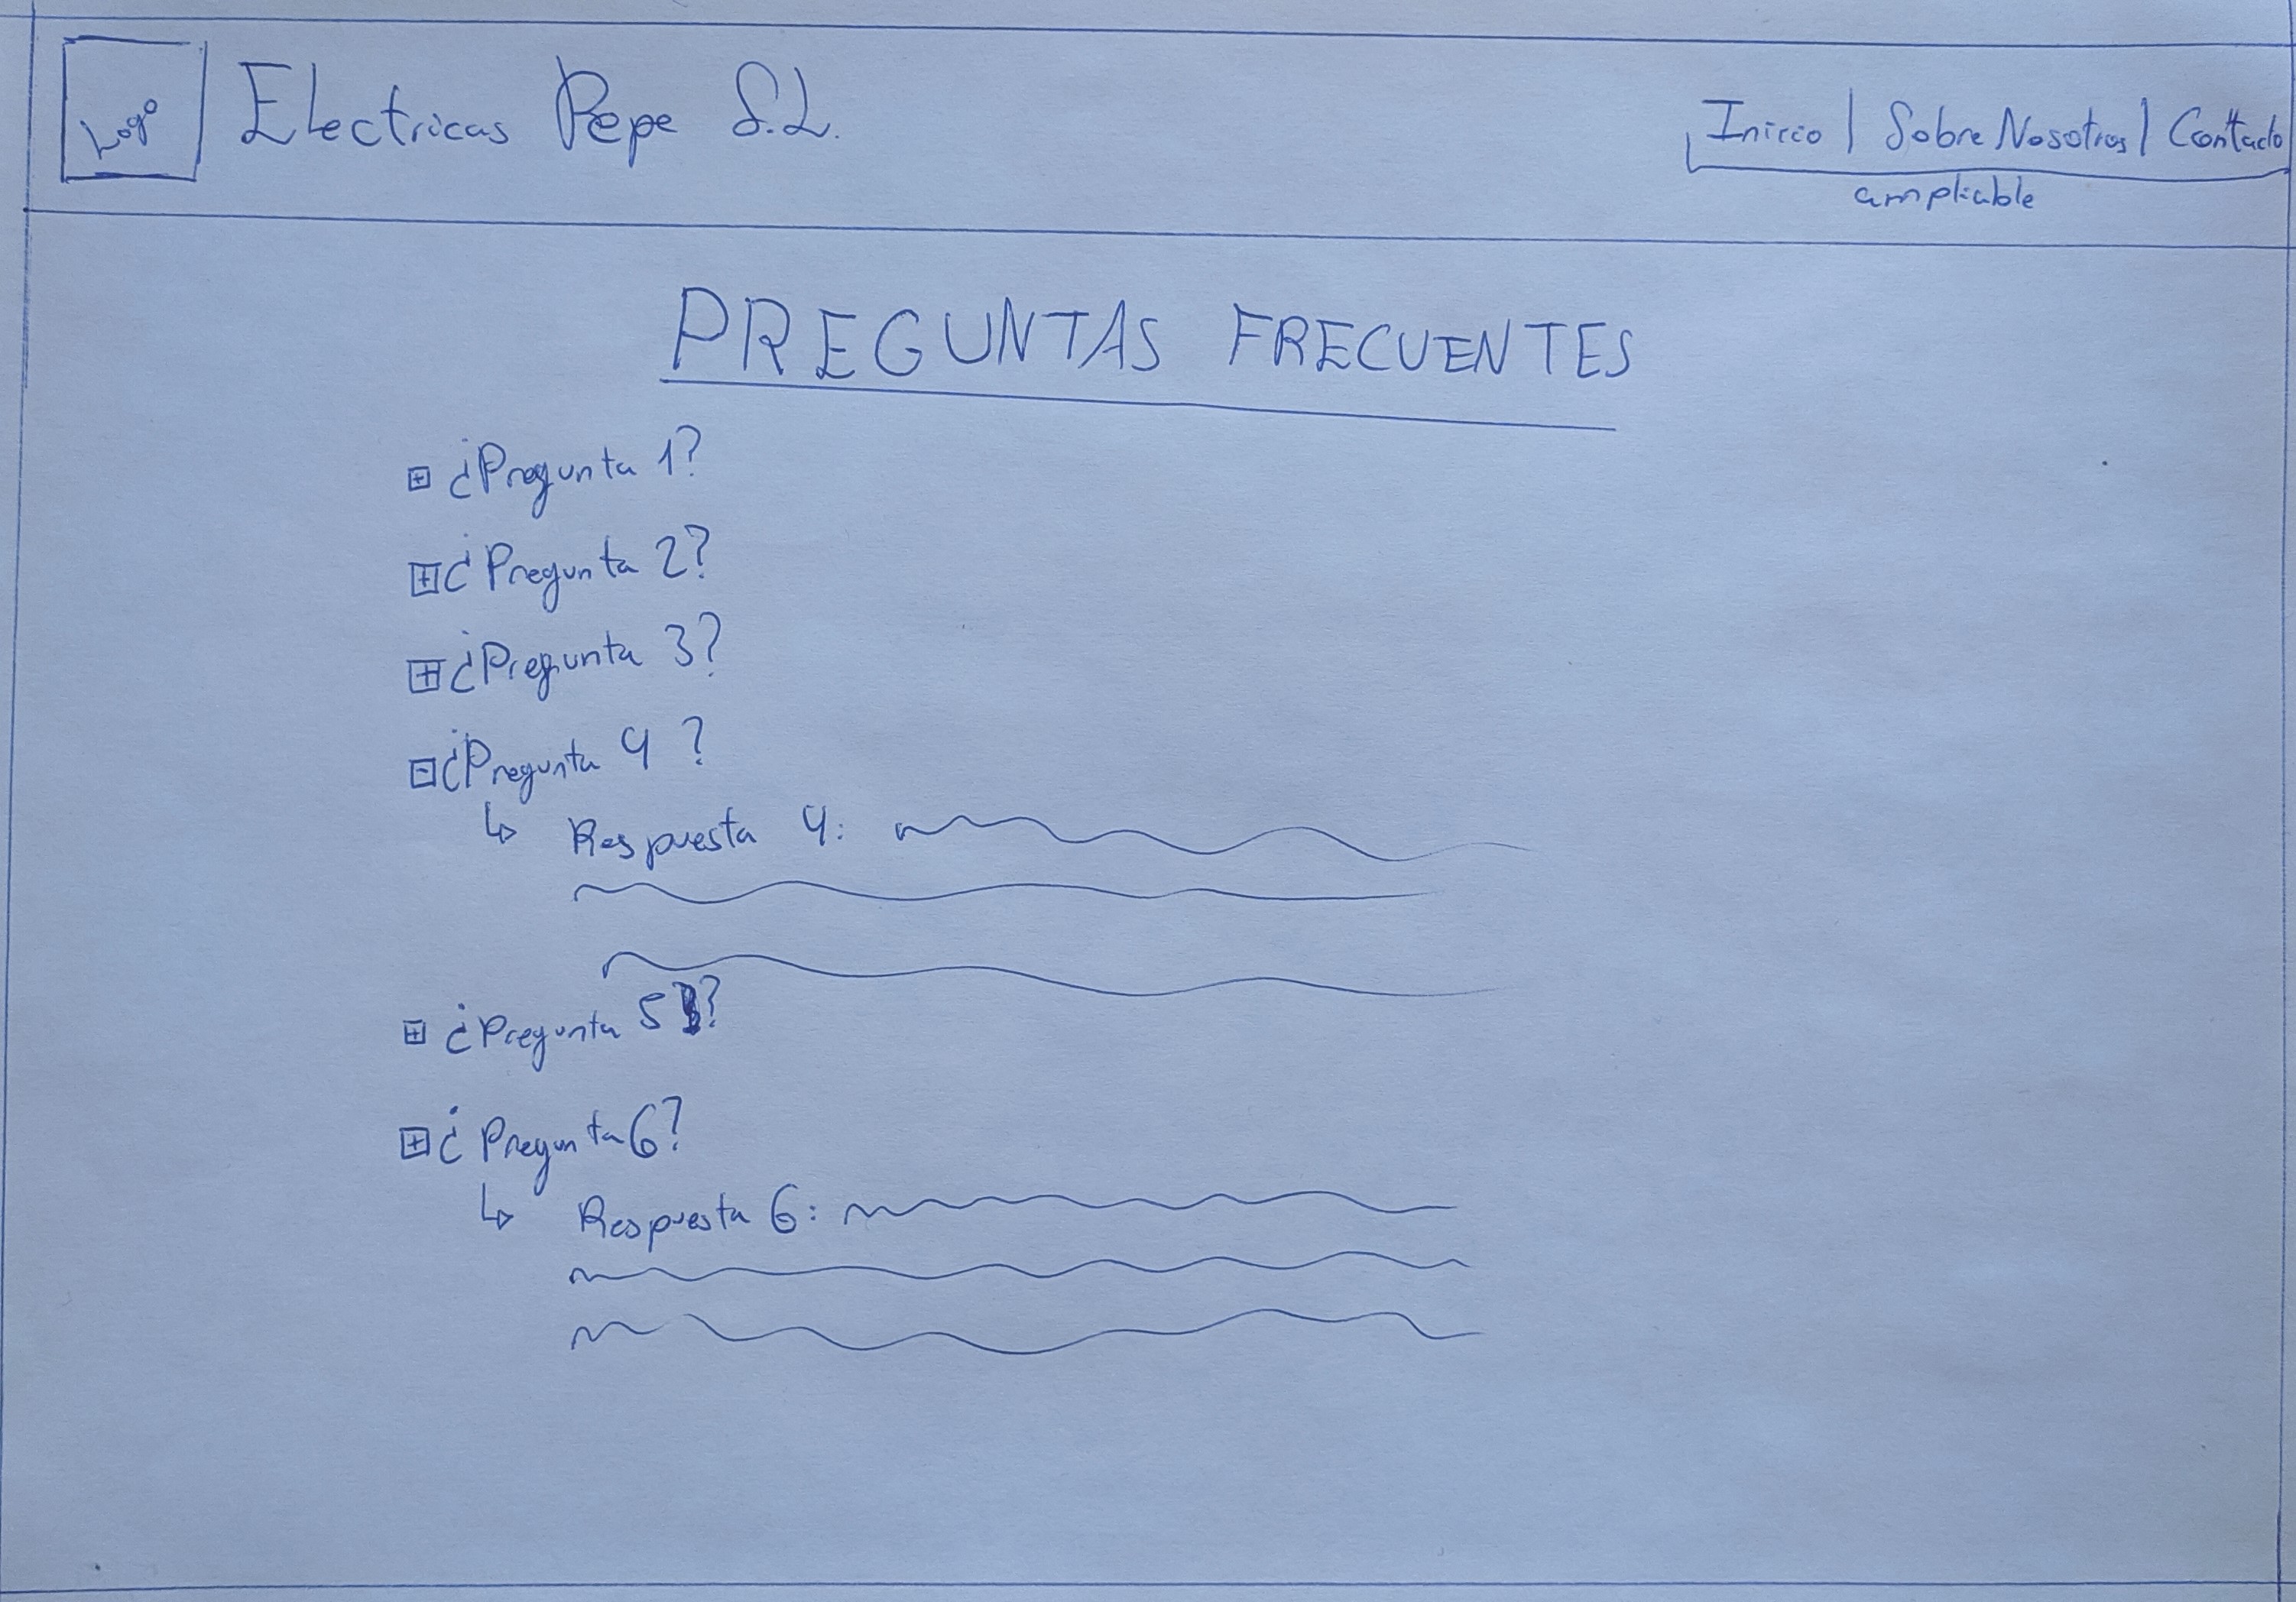 Logo
Electricas Pepe S.L.
Inicio | Sobre Nosotros | Contacto
ampliable
PREGUNTAS FRECUENTES
¿Pregunta 1?
¿Pregunta 2?
¿Pregunta 3?
¿Pregunta 4?
Respuesta 4:
¿Pregunta 5?
¿Pregunta 6?
Respuesta 6: